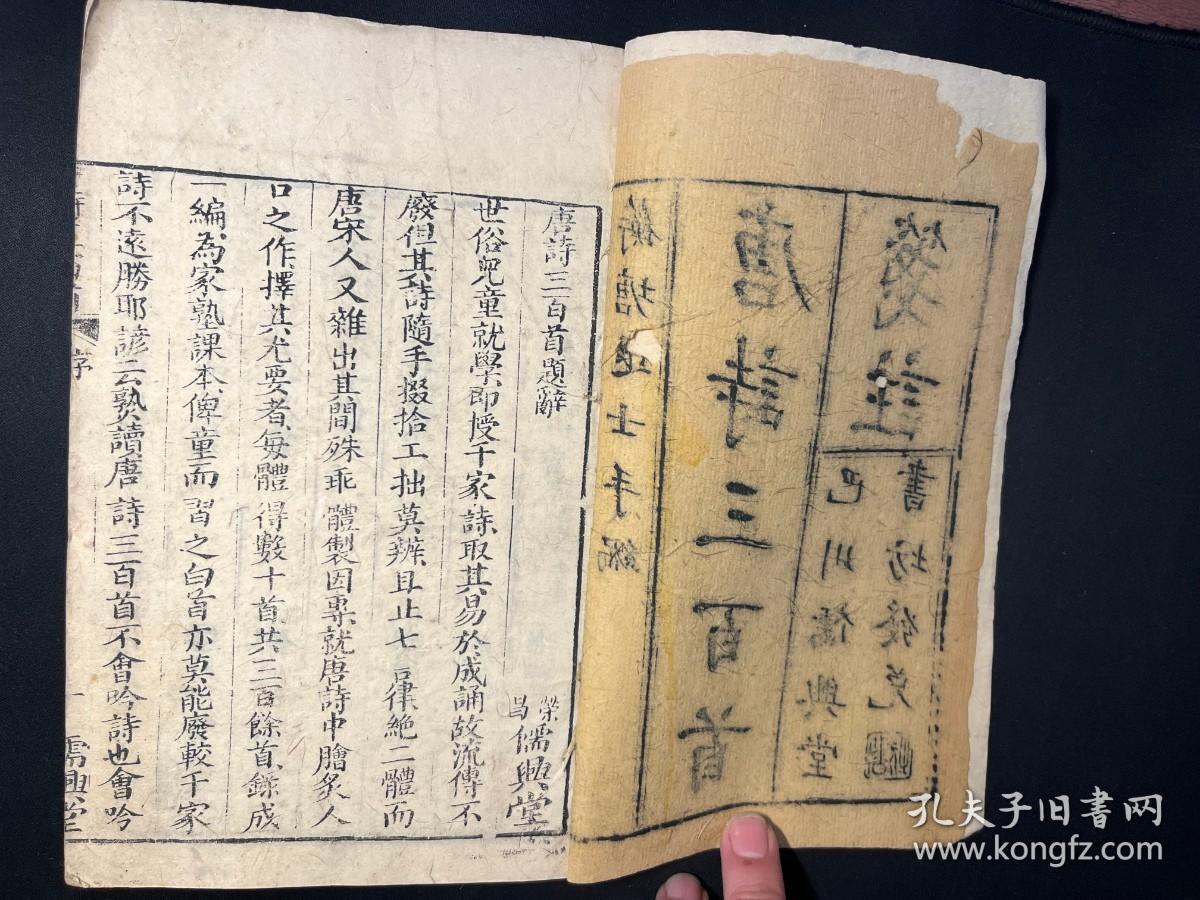 衡塘退士手編
唐詩三百首
箋註
巴川儒興堂
書坊發兌
唐詩三百首題辭
榮昌儒興堂
世俗兒童就學即授千家詩取其易於成誦故流傳不
廢但其詩隨手掇拾工拙莫辨且止七言律絶二體而
唐宋人又雜出其間殊乖體製因專就唐詩中膾炙人
口之作擇其尤要者每體得數十首共三百餘首錄成
一編為家塾課本俾童而習之白首亦莫能廢較千家
詩不遠勝耶諺云熟讀唐詩三百首不會吟詩也會吟
序
一
儒興堂
孔夫子旧书网
www.kongfz.com